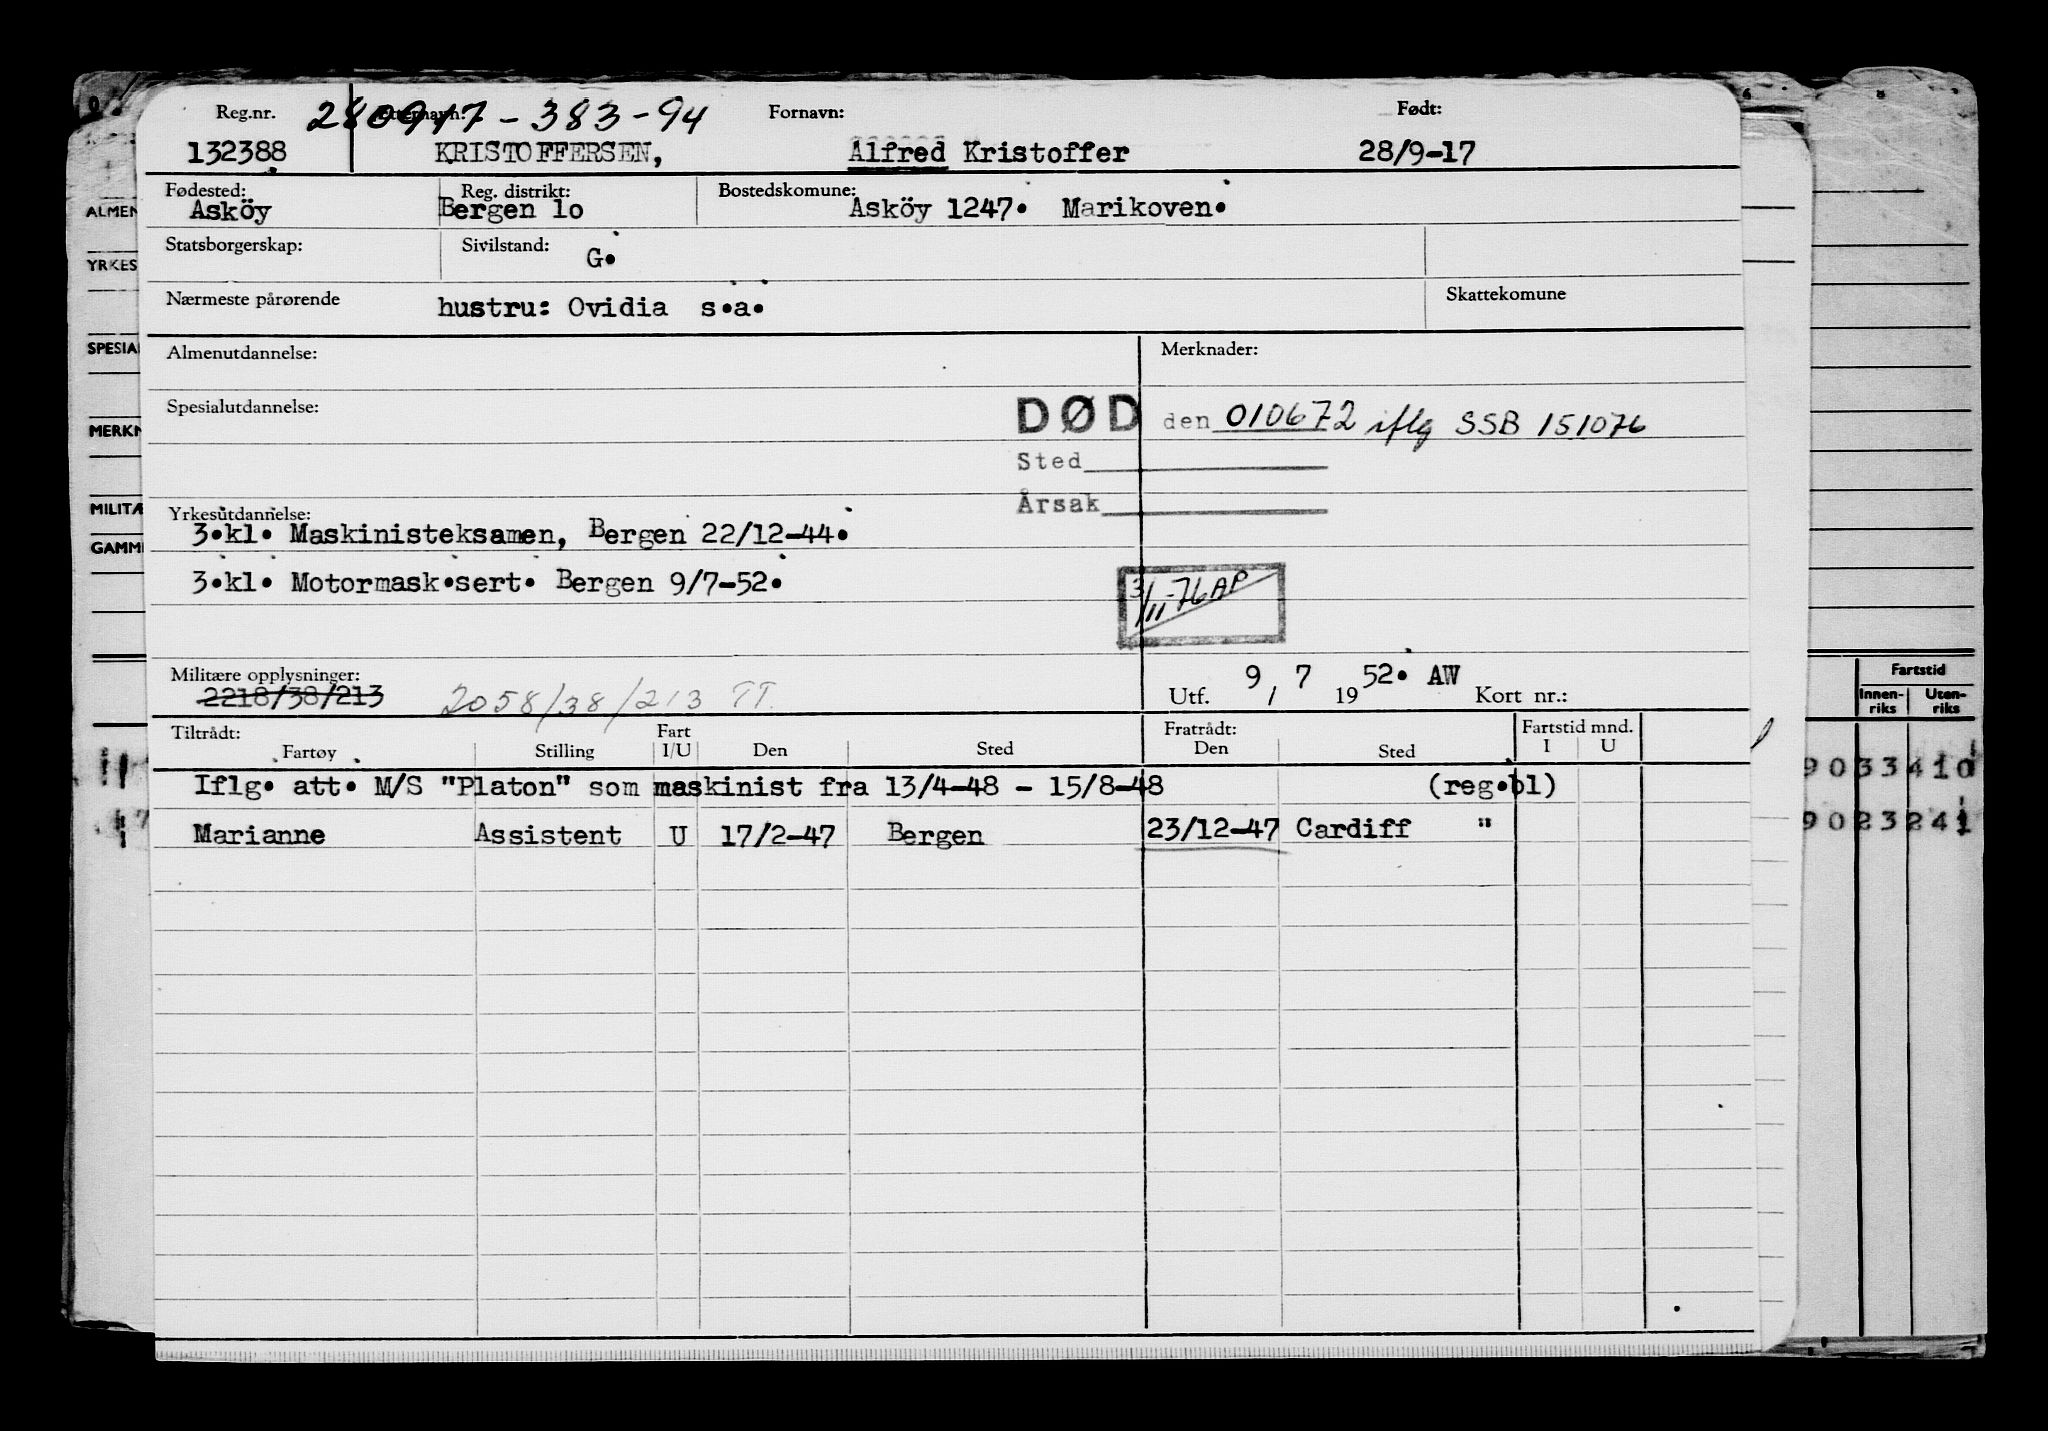 Reg.nr. Etternavn: 280917-383-94 Fornavn: Født:
132388 KRISTOFFERSEN, Alfred Kristoffer 28/9-17
Fødested: Reg. distrikt: Bostedskomune:
Asköy Bergen 1o Asköy 1247. Marikoven.
Statsborgerskap: Sivilstand: G.
Nærmeste pårørende hustru: Ovidia s.a. Skattekomune
Almenutdannelse: Merknader:
Spesialutdannelse: DØD den 010672 iflg SSB 151076
Sted
Årsak
Yrkesutdannelse:
3.kl. Maskinisteksamen, Bergen 22/12-44.
3.kl. Motormask.sert. Bergen 9/7-52.
3/11-76 AP
Militære opplysninger:
2218/38/213 2058/38/213 TT. Utf. 9 / 7 1952. AW Kort nr.:
Tiltrådt: Fart Fratrådt: Fartstid mnd.
Fartøy Stilling I/U Den Sted Den Sted I U
Iflg. att. M/S "Platon" som maskinist fra 13/4-48 - 15/8-48 (reg.bl)
Marianne Assistent U 17/2-47 Bergen 23/12-47 Cardiff "
ALMEN
YRKES
SPESIA
MERKN
MILITÆ
GAMM
Fartstid
Innen-riks Uten-riks
9033410
9023241